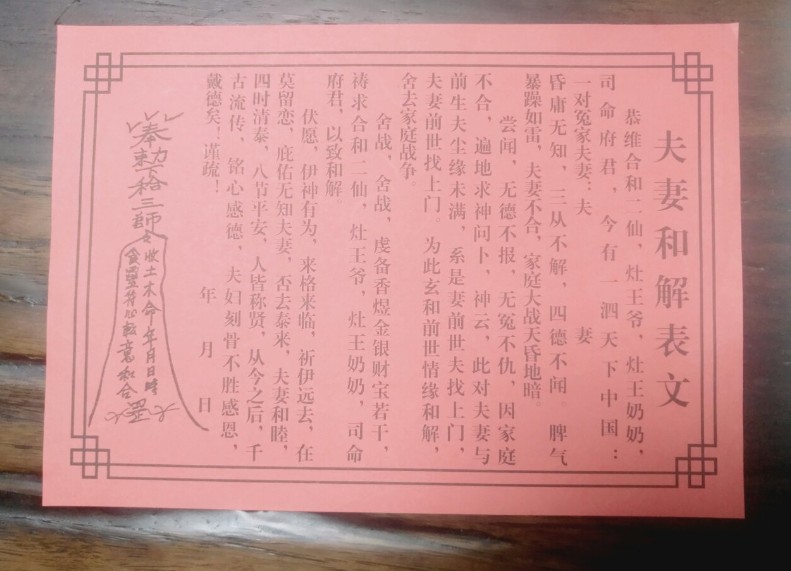 夫妻和解表文
恭维合和二仙，灶王爷，灶王奶奶，
司命府君，今有一泗天下中国：
一对冤家夫妻：夫 妻
昏庸无知，三从不解，四德不闻。脾气
暴躁如雷，夫妻不合，家庭大战天昏地暗。
尝闻，无德不报，无冤不仇，因家庭
不合，遍地求神问卜，神云，此对夫妻与
前生夫尘缘未满，系是妻前世夫找上门，
夫妻前世找上门。为此玄和前世情缘和解，
舍去家庭战争。
舍战，舍战，虔备香煜金银财宝若干，
祷求合和二仙，灶王爷，灶王奶奶，司命
府君，以致和解。
伏愿，伊神有为，来格来临，祈伊远去，在
莫留恋，庇佑无知夫妻，否去泰来，夫妻和睦，
四时清泰，八节平安，人皆称贤，从今之后，千
古流传，铭心感德，夫妇刻骨不胜感恩，
戴德矣！谨疏！
年 月 日
奉勅 三師
收土木命 年月日時
和合